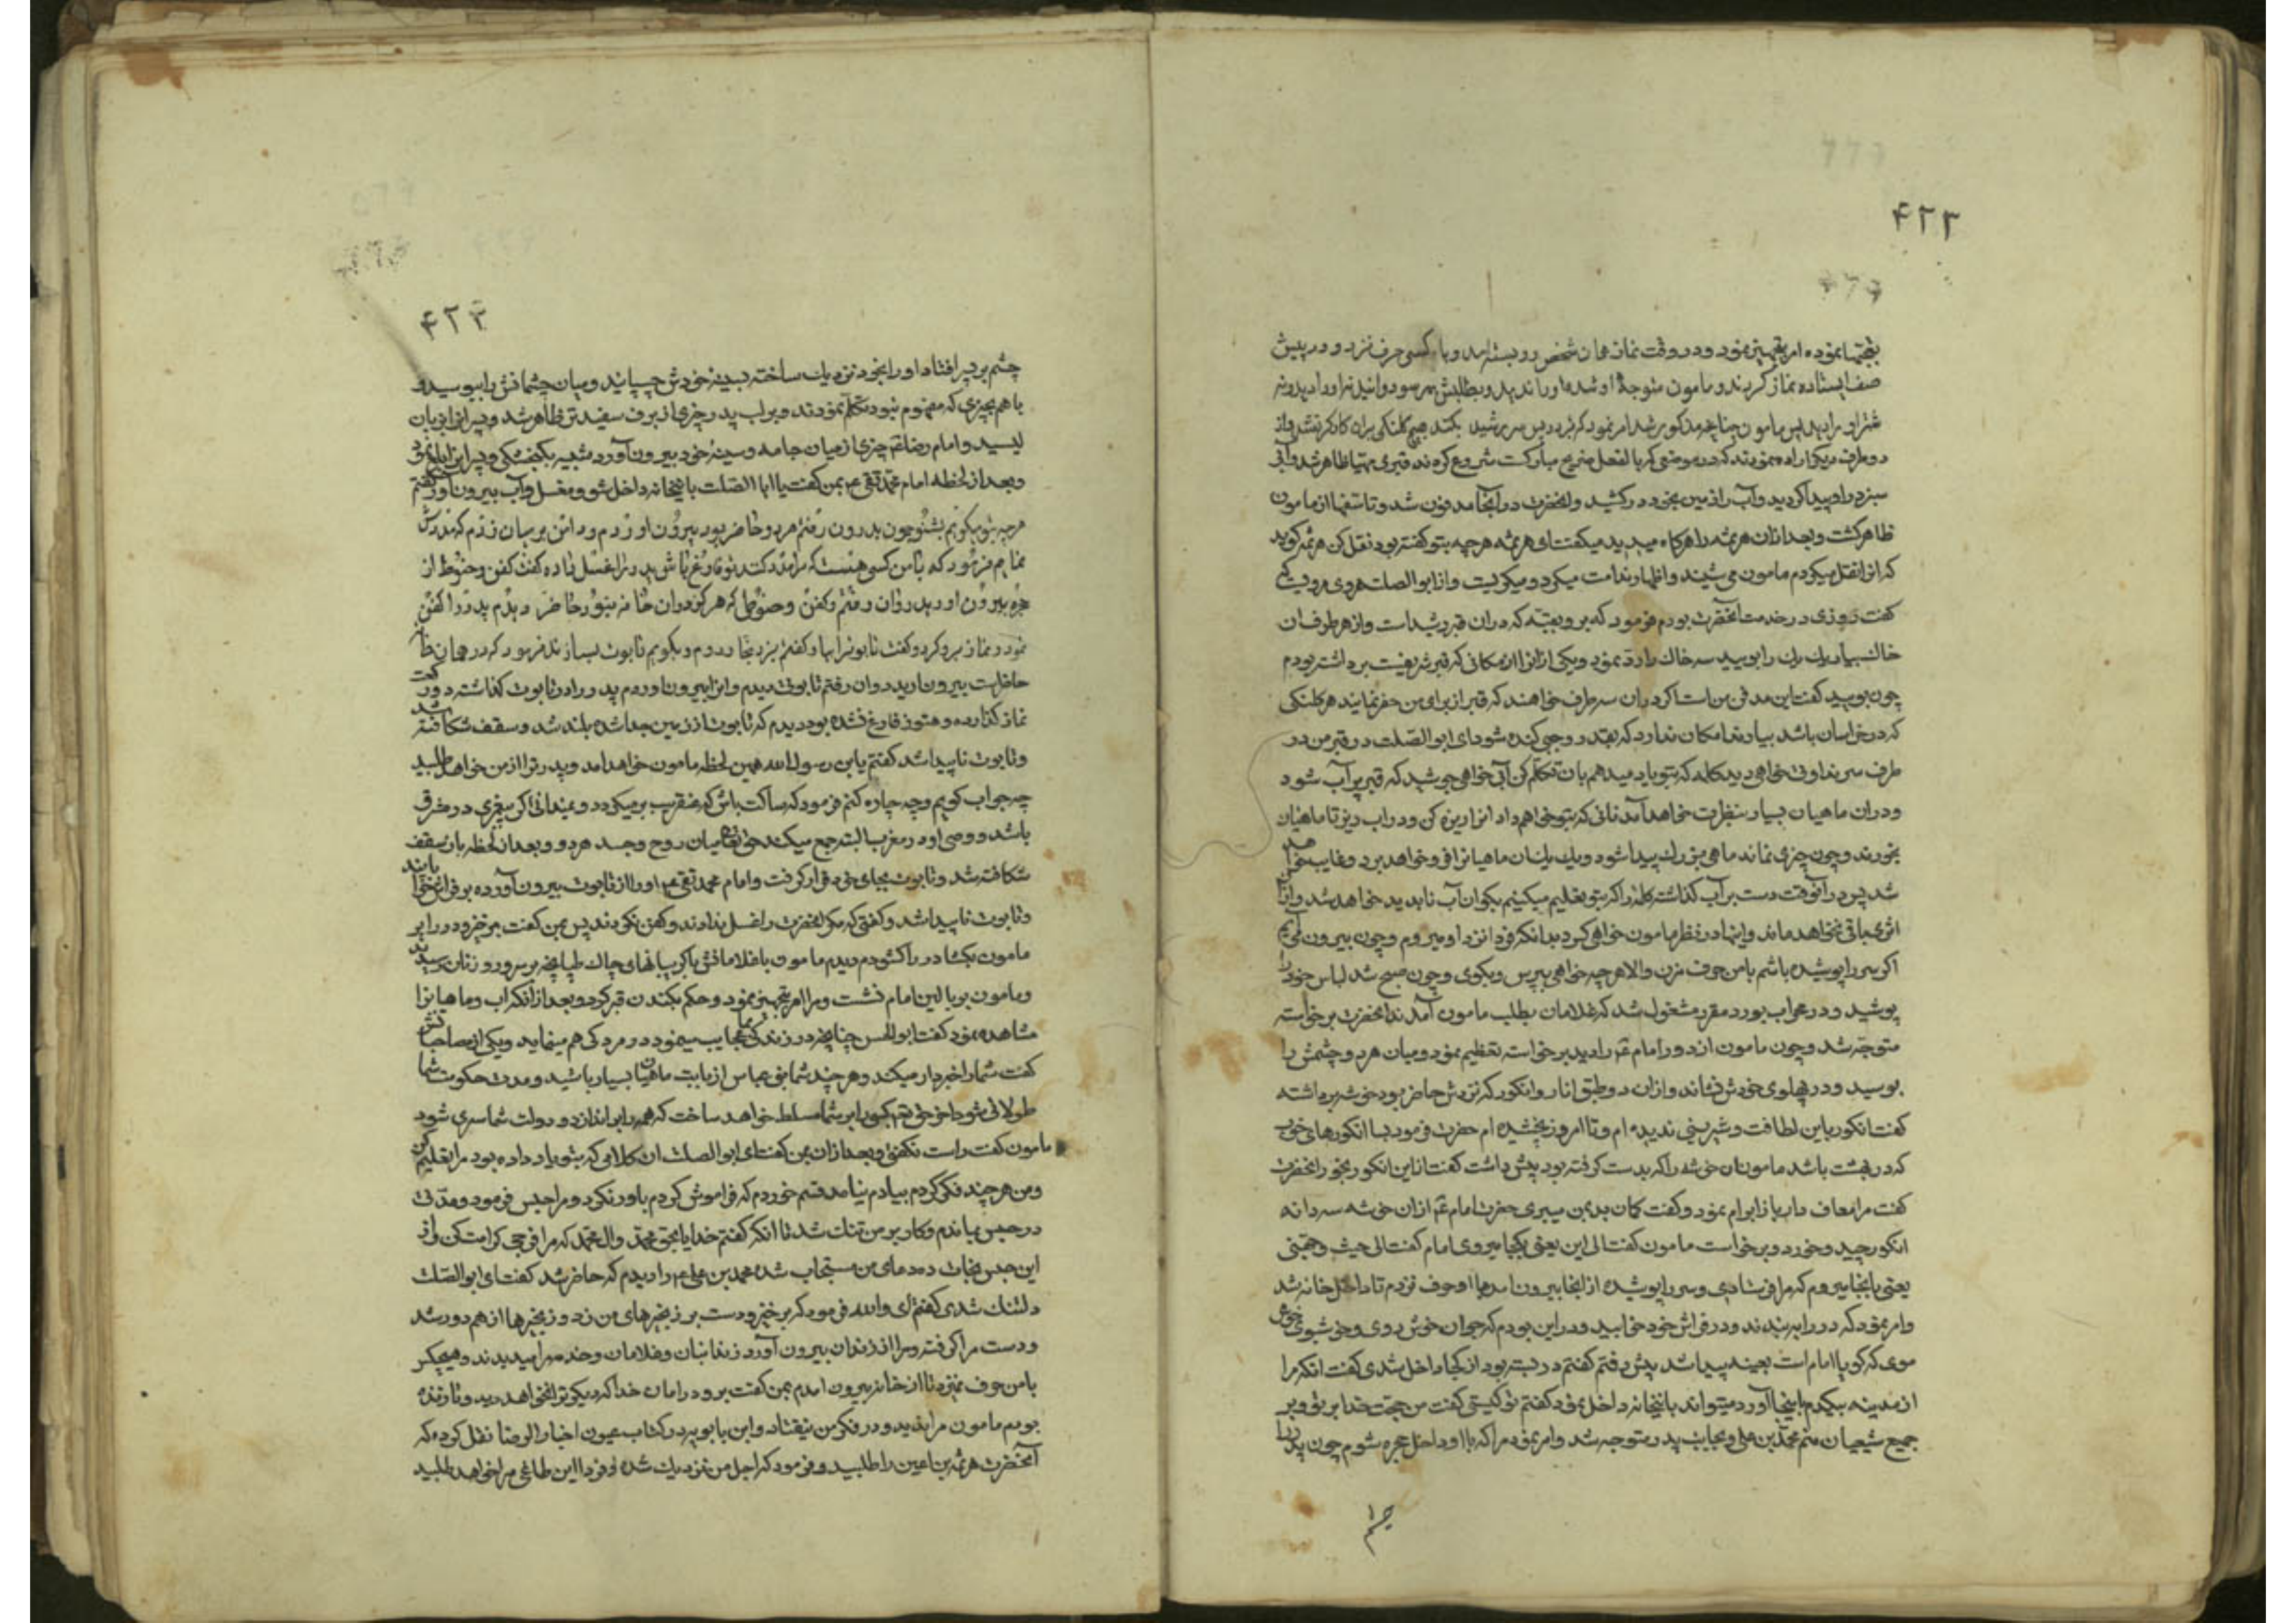 ۴۲۲
تعجبها نموده امر بتجهیز نمود و در وقت نماز همان شخص رو بسته آمد و با کسی حرف نزد و در پیش
صف ایستاده نماز کردند و مامون متوجه او شده او را ندید و بطلبش هر سو دوانید نه او را دید و نه
شتر او را دید پس مامون چنانچه مذکور شد امر نمود که قبر در پس سر رشید بکنند هیچ کلنکی بران کارکر نشد و از
دو طرف دیکر اراده نمودند که در موضعی که بالفعل ضریح مبارکست شروع کردند قبری مهیا ظاهر شد و آبی
سبز در او پیدا کردید و آب را زمین بخود در کشید و آنحضرت در آنجا مدفون شد و تاسفها از مامون
ظاهر کشت و بعد ازان هرثمه را هر کاه میدید میکفت ای هرثمه هر چه بتو کفته بود نقل کن هرثمه کوید
که انرا نقل میکردم مامون می شنید و اظهار ندامت میکرد و میکریست و از ابو الصلت هروی مرویست که
کفت روزی در خدمت آنحضرت بودم فرمود که برو بقبه که دران قبر رشید است و از هر طرف ان
خاک بیار یک یک را بویید سه خاک را رد نمود و یکی از انرا از مکانی که قبر شریفست برداشته بودم
چون بویید کفت این مدفن من است اکر دران سه طرف خواهند که قبر از برای من حفر نمایند هر کلنکی
که در خراسان باشد بیارند امکان ندارد که بقدر وجبی کنده شود ای ابو الصلت در قبر من در
طرف سر نداوتی خواهی دید کلمه که بتو یاد میدهم بان تکلم کن آبی خواهی جوشید که قبر پر آب شود
و دران ماهیان بسیار بنظرت خواهد آمد نانی که بتو خواهم داد انرا ریزه کن و در اب ریز تا ماهیان
بخورند و چون چیزی نماند ماهی بزرک پیدا شود و یک یک ان ماهیانرا فرو خواهد برد و غایب خواهد
شد پس در آنوقت دست بر آب کذاشته کلمه را که بتو تعلیم میکنیم بکو ان آب نابدید خواهد شد و از آن
اثری باقی نخواهد ماند و اینها در نظر مامون خواهی کرد بدانکه فردا نزد او میروم و چون بیرون می آیم
اکر سر را پوشیده باشم با من حرف مزن و الا هر چه خواهی بپرس و بکوی و چون صبح شد لباس خود را
پوشید و در محراب بورد مقرر مشغول شد که غلامان بطلب مامون آمدند آنحضرت برخواسته
متوجه شد و چون مامون از دور امام ع را دید برخواسته تعظیم نمود و میان هر دو چشمش را
بوسید و در پهلوی خودش نشاند و ازان دو طبق انار و انکور که نزدش حاضر بود خوشه برداشته
کفت انکور باین لطافت و شیرینی ندیده ام و تا امروز نچشیده ام حضرت فرمود بسا انکورهای خوب
که در بهشت باشد مامون ان خوشه را که بدست کرفته بود پیش داشت کفت از این انکور بخور آنحضرت
کفت مرا معاف دار باز ابرام نمود و کفت کمان بد بمن میبری حضرت امام ع ازان خوشه سه دانه
انکور چید و خورد و برخواست مامون کفت الی این یعنی بکجا میروی امام کفت الی حیث وجهتنی
یعنی بانجا میروم که مرا فرستادی و سر را پوشیده از انجا بیرون آمد و با او حرف نزدم تا داخل خانه شد
و امر نمود که در را به بندند و در فراش خود خوابید و در این بودم که جوان خوش روی و خوشبوی خوش
موی که کویا امام است بعینه پیدا شد پیش رفتم کفتم در بسته بود از کجا داخل شدی کفت انکه مرا
از مدینه بیکدم باینجا آورد میتواند باینخانه داخل نمود کفتم تو کیستی کفت من حجت خدا بر تو و بر
جمیع شیعیان منم محمد بن علی و بجانب پدر متوجه شد و امر نمود مرا که با او داخل حجره شوم چون پدر را
چشم
۴۲۳
چشم بر پسر افتاد او را بخود نزدیک ساخته بسینه خودش چسپانید و میان چشمانش را ببوسید و
با هم بچیزی که مفهوم نبود تکلم نمودند و بر لب پدر چیزی از برف سفیدتر ظاهر شد و پسر انرا بزبان
لیسید و امام رضا ع چیزی از میان جامه و سینه خود بیرون آورد شبیه بکنجشکی و پسر انرا ابلاع نمود
و بعد از لحظه امام محمد تقی ع بمن کفت یا ابا الصلت باینخانه داخل شو و مغسل و آب بیرون آور کفتم
هرچه بتو میکویم بشنو چون بدرون رفتم هر دو حاضر بود بیرون اوردم و دامن بر میان زدم که مددش
نمایم فرمود که با من کسی هست که مرا مدد کند تو فارغ باش پدر را غسل داده کفت کفن و حنوط از
حجره بیرون اور بدرون رفتم و کفن و حنوطی که هرکز دران خانه نبود حاضر دیدم پدر را کفن
نمود و نماز برو کرد و کفت تابوت را بیار کفتم نزد نجار روم و بکویم تابوت بسازند فرمود که در همان خانه
حاضر است بیرون ارید روان رفتم تابوت دیدم و انرا بیرون اوردم پدر را در تابوت کذاشته دو رکعت
نماز کذارده و هنوز فارغ نشده بود دیدم که تابوت از زمین جدا شده بلند شد و سقف شکافته شد
و تابوت ناپیدا شد کفتم یابن رسول الله همین لحظه مامون خواهد امد و پدرت را از من خواهد طلبید
چه جواب کویم و چه چاره کنم فرمود که ساکت باش که عنقریب بر میکردد و نمیدانی اکر پیغمبری در مشرق
باشد و وصی او در مغرب البته جمع میکند حق تعالی میان روح و جسد هر دو و بعد از لحظه باز سقف
شکافته شد و تابوت بجای خود قرار کرفت و امام محمد تقی ع او را از تابوت بیرون آورده بر فراش خوابانید
و تابوت ناپیدا شد و کفتی که مکر آنحضرت را غسل ندادند و کفن نکردند پس بمن کفت برخیز و در را بر
مامون بکشا در را کشودم دیدم مامون با غلامانش با کریبانهای چاک طپانچه بر سر و رو زنان رسید
و مامون بر بالین امام نشست و مرا امر بتجهیز نمود و حکم بکندن قبر کرد و بعد از آنکه اب و ماهیانرا
مشاهده نمود کفت ابو الحسن چنانچه در زندکی عجایب مینمود در مردکی هم مینماید و یکی از مصاحبانش
کفت شما را خبردار میکند و هر چند شما بنی عباس از بابت ماهیان بسیار باشید و مدت حکومت شما
طولانی شود اخر حق تعالی کسی را بر شما مسلط خواهد ساخت که همه را براندازد و دولت شما سری شود
مامون کفت راست نکفتی و بعد ازان بمن کفت ای ابو الصلت ان کلامی که بتو یاد داده بود مرا تعلیم کن
و من هر چند فکر کردم بیادم نیامد قسم خوردم که فراموش کردم باور نکرد و مرا حبس فرمود و مدتی
در حبس بماندم و کار بر من تنک شد تا انکه کفتم خدایا بحق محمد و ال محمد که مرا فرجی کرامت کن و از
این حبس نجات ده دعای من مستجاب شده محمد بن علی ع را دیدم که حاضر شد کفت ای ابو الصلت
دلتنک شدی کفتم ای والله فرمود که برخیز و دست بر زنجیرهای من زد و زنجیرها از هم دور شد
و دست مرا کرفته و مرا از زندان بیرون آورد زندانبان و غلامان و خدمه مرا میدیدند و هیچکس
با من حرف نمیزد تا از خانه بیرون امدم بمن کفت برو در امان خدا که دیکر ترا نخواهد دید و تا زنده
بودم مامون مرا ندید و در فکر من نیفتاد و ابن بابویه در کتاب عیون اخبار الرضا نقل کرده که
آنحضرت هرثمه بن اعین را طلبید و فرمود که اجل من نزدیک شده و فردا این طاغی مرا خواهد طلبید